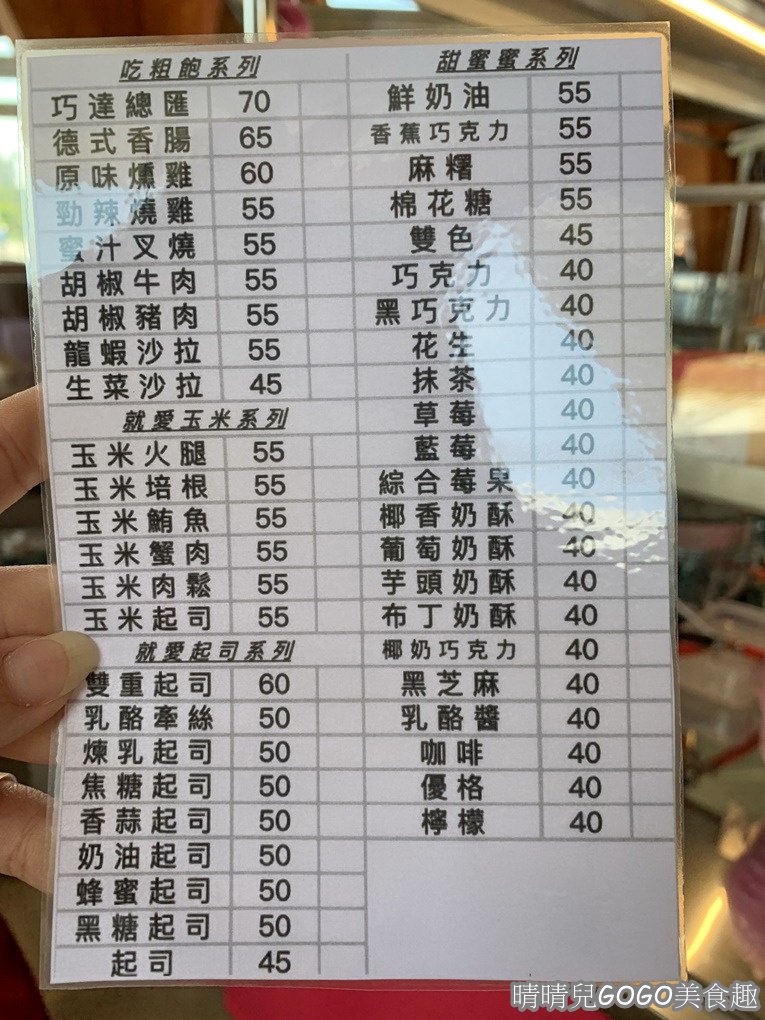 吃粗飽系列
巧達總匯 70
德式香腸 65
原味燻雞 60
勁辣燒雞 55
蜜汁叉燒 55
胡椒牛肉 55
胡椒豬肉 55
龍蝦沙拉 55
生菜沙拉 45
就愛玉米系列
玉米火腿 55
玉米培根 55
玉米鮪魚 55
玉米蟹肉 55
玉米肉鬆 55
玉米起司 55
就愛起司系列
雙重起司 60
乳酪牽絲 50
煉乳起司 50
焦糖起司 50
香蒜起司 50
奶油起司 50
蜂蜜起司 50
黑糖起司 50
起司 45
甜蜜蜜系列
鮮奶油 55
香蕉巧克力 55
麻糬 55
棉花糖 55
雙色 45
巧克力 40
黑巧克力 40
花生 40
抹茶 40
草莓 40
藍莓 40
綜合莓果 40
椰香奶酥 40
葡萄奶酥 40
芋頭奶酥 40
布丁奶酥 40
椰奶巧克力 40
黑芝麻 40
乳酪醬 40
咖啡 40
優格 40
檸檬 40
晴晴兒GOGO美食趣